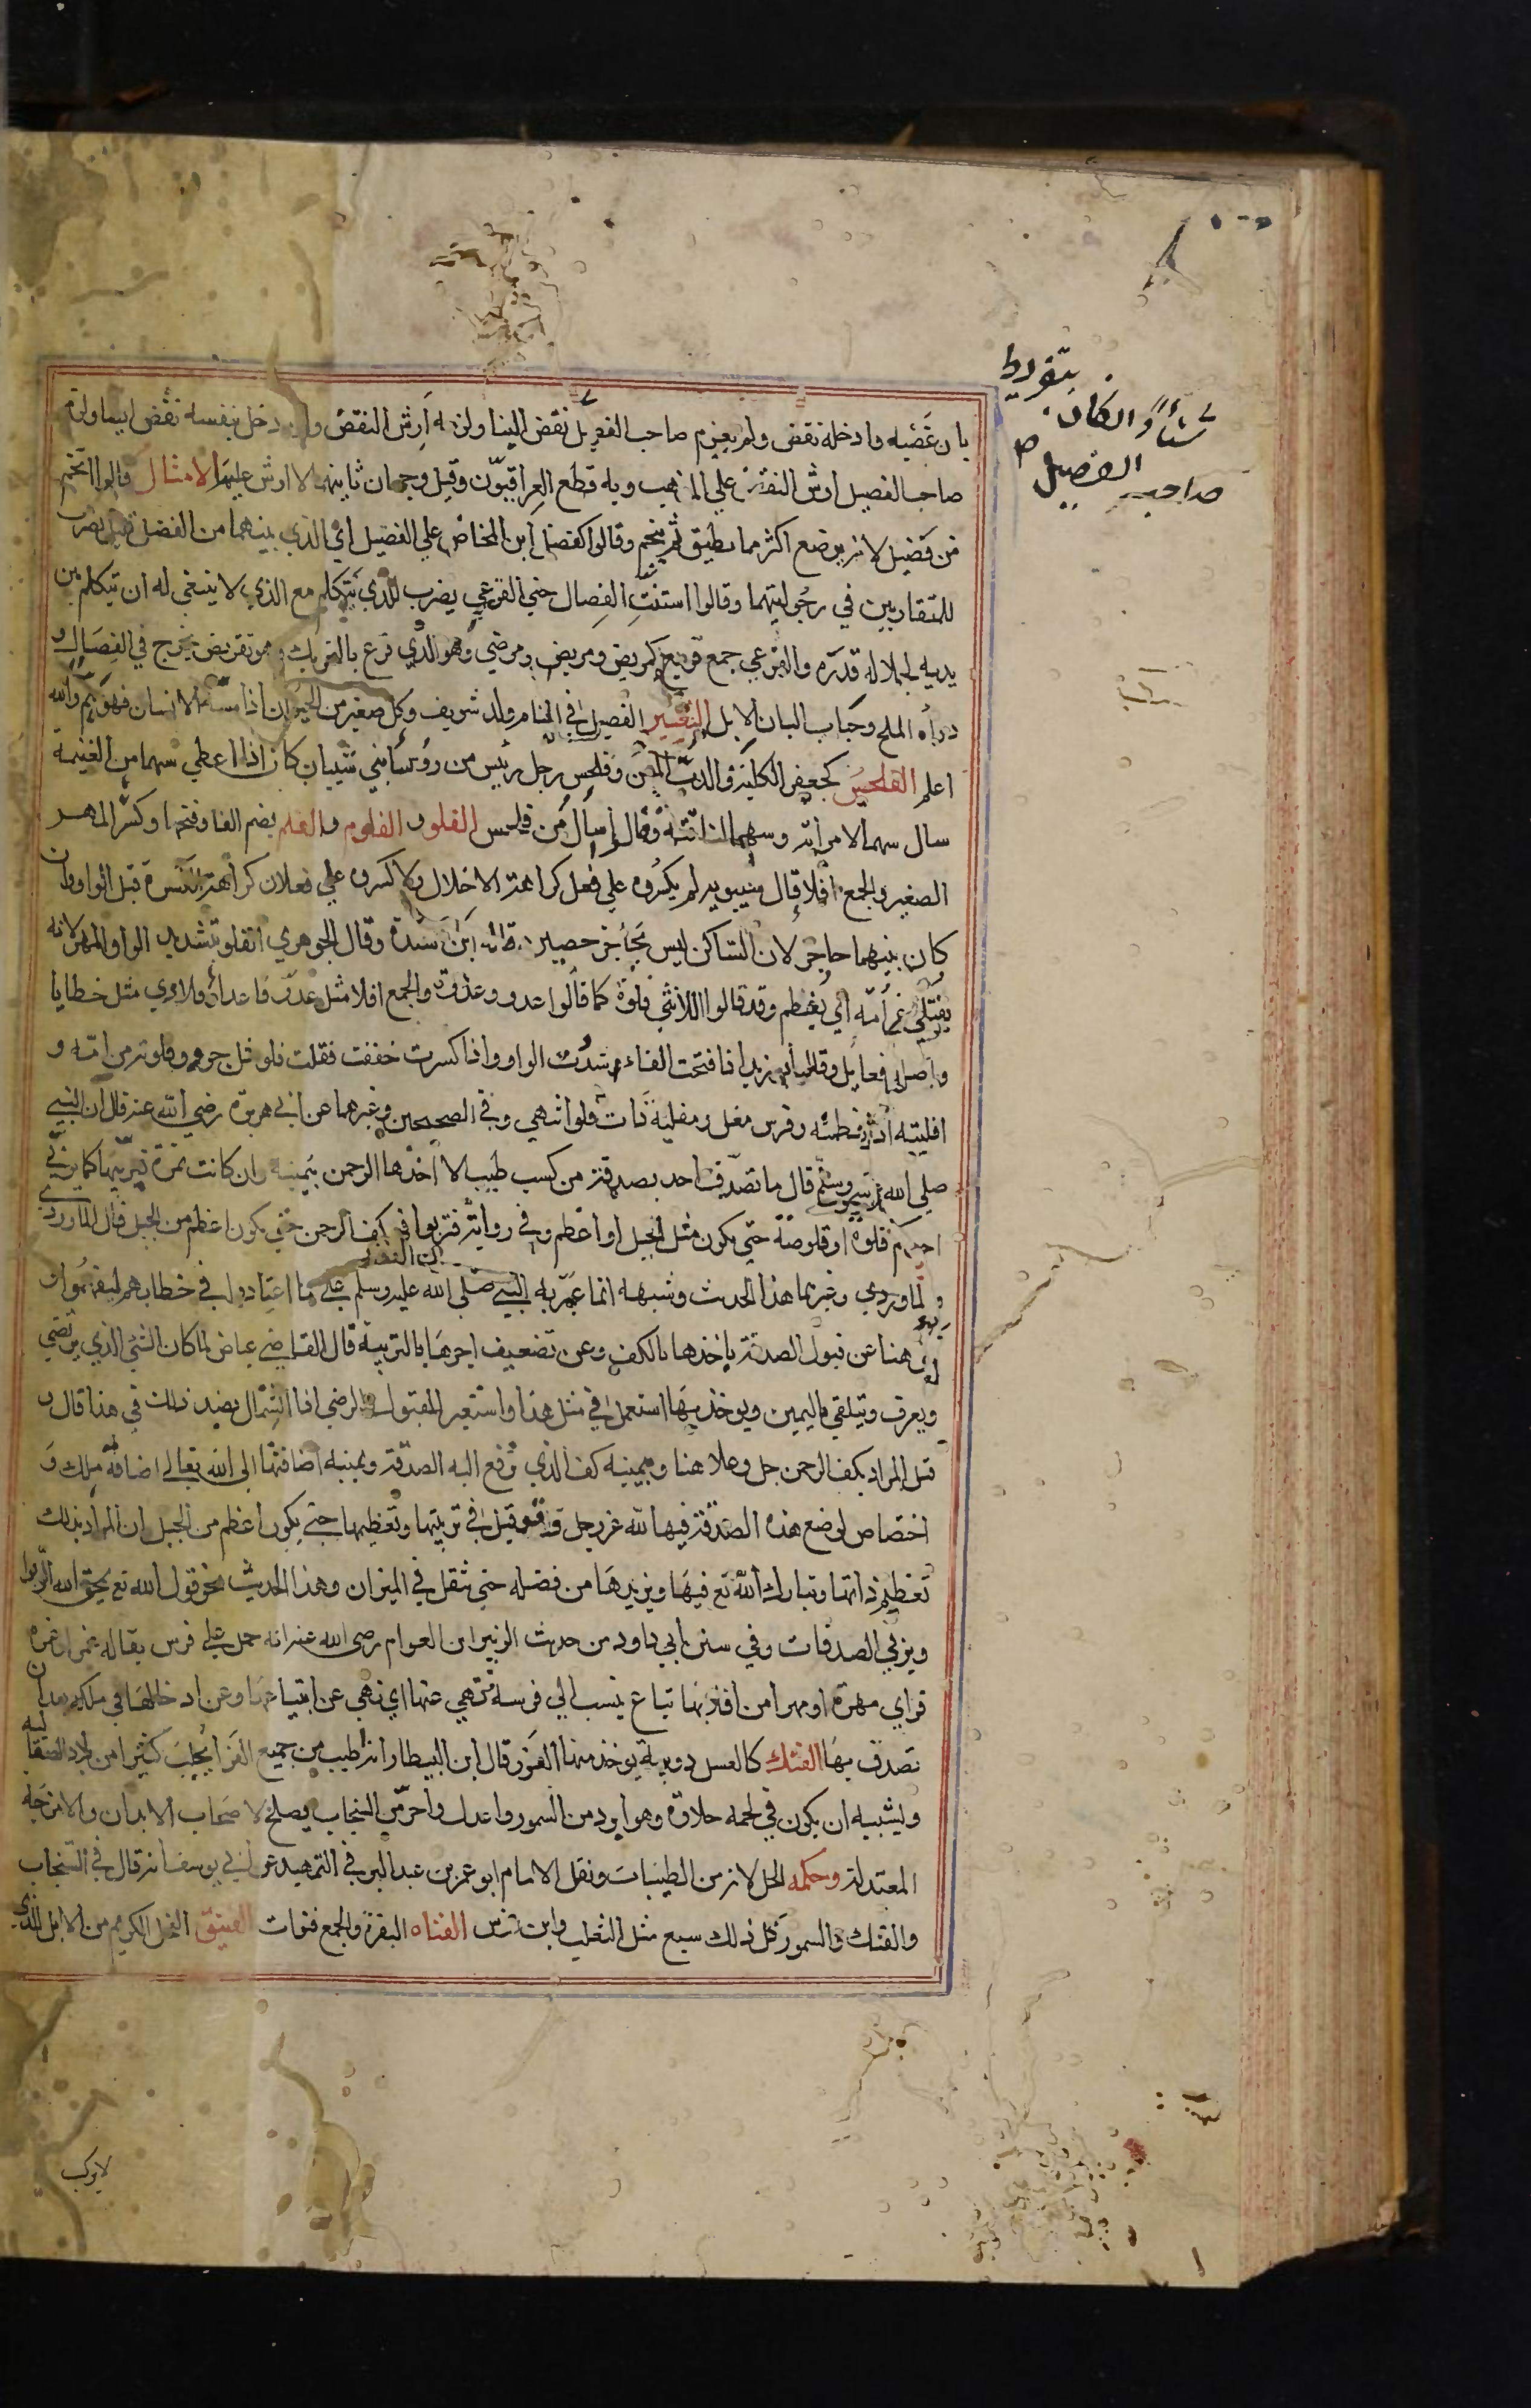 بتفريط
شيأ وان كان
صاحب الفصيل
بان غصبه وادخله نقض ولم يغرم صاحب الفصيل نقض البنا ولزمه أرش النقض وان دخل بنفسه نقض ايضا ولزم
صاحب الفصيل ارش النقض علي المذهب وبه قطع العراقيون وقيل وجهان ثانيهما لا ارش عليه الامثال قالوا اتخم
من فصيل لانه يرضع اكثر مما يطيق ثم يتخم وقالوا كفضل ابن المخاض علي الفصيل اي الذي بينهما من الفضل قليل يضرب
للمتقاربين في رجوليتهما وقالوا استنت الفصال حتي القرعي يضرب للذي يتكلم مع الذي لا ينبغي له ان يتكلم بين
يديه لجلالة قدره والقرعي جمع قريع كمريض ومرضي وهو الذي قرع بالتحريك وهو تقريض يخرج في الفصال و
دواه الملح وحباب البان الابل التعبير الفصيل في المنام ولد شريف وكل صغير من الحيوان اذا مسه الانسان فهو هم والله
اعلم الفلحس كجعفر الكلب والدب المسن وفلحس رجل رئيس من رؤسا بني شيبان كان اذا اعطي سهما من الغنيمة
سال سهما لامراته وسهما لناقته وقالوا أسأل من فلحس الفلو والفلوم والفلم بضم الفا وفتحها وكسرها المهر
الصغير والجمع افلا قال سيبويه لم يكسروه علي فعل كراهة الاخلال ولا كسروه علي فعلان كراهة الكسرة قبل الواو وان
كان بينهما حاجز لان الساكن ليس بحاجز حصين قاله ابن سيدة وقال الجوهري الفلو بتشديد الواو المهر لانه
يفتلي عن أمه اي يفطم وقد قالوا للانثي فلوة كما قالوا عدو وعدوة والجمع افلا مثل عدو واعداء وفلاوي مثل خطايا
واصله فعايل وقال ابو زيد اذا فتحت الفاء شددت الواو واذا كسرت خففت فقلت فلو مثل جرو وفلوته من امه و
افليته اذا فطمته وفرس مفل ومفلية ذات فلو انتهي وفي الصحيحين وغيرهما عن ابي هريرة رضي الله عنه قال ان النبي
صلي الله عليه وسلم قال ما تصدق احد بصدقة من كسب طيب الا اخذها الرحمن بيمينه وان كانت تمرة فيربيها كما يربي
احدكم فلوه او قلوصه حتي يكون مثل الجبل او اعظم وفي رواية فتربوا في كف الرحمن حتي يكون اعظم من الجبل قال الماوردي
والماوردي وغيرهما هذا الحديث وشبهه انما عبر به النبي صلي الله عليه وسلم علي ما اعتادوا في خطابهم ليفهموا و
هنا عن قبول الصدقة باخذها بالكف وعن تضعيف اجرها بالتربية قال القاضي عياض لما كان الشئ الذي يرتضي
ويعرف ويتلقي باليمين ويوخذ بها استعمل في مثل هذا واستعير للقبول والرضي اذا الشمال بضد ذلك في هذا قال و
قيل المراد بكف الرحمن جل وعلا هنا وبيمينه كف الذي تدفع اليه الصدقة ويمينه اضافتها الي الله تعالي اضافة ملك و
اختصاص لوضع هذه الصدقة فيها لله عز وجل وقد قيل في تربيتها وتعظيمها حتي يكون اعظم من الجبل ان المراد بذلك
تعظيم ذاتها وتبارك الله تع فيها ويزيدها من فضله حتي تثقل في الميزان وهذا الحديث نحو قول الله تع يمحق الله الربوا
ويربي الصدقات وفي سنن ابي داود من حديث الزبير ابن العوام رضي الله عنه انه حمل علي فرس يقال له غمر او غمرة
فراي مهرة او مهرا من افلائها تباع ينسب الي فرسه فنهي عنها اي نهي عن ابتياعها وعن ادخالها في ملكه بعد ان
تصدق بها الفنك كالعسل دويبة يوخذ منها الفرو قال ابن البيطار انه اطيب من جميع الفرا يجلب كثيرا من بلاد الصقالبه
وليشبه ان يكون في لحمه حلاوة وهو ابرد من السمور واعدل واحر من السنجاب يصلح لاصحاب الابدان والامزجه
المعتدلة وحكمه الحل لانه من الطيبات ونقل الامام ابو عمر بن عبد البر في التمهيد عن ابي يوسف انه قال في السنجاب
والفنك والسمور كل ذلك سبع مثل الثعلب وابن عرس الفناه البقرة والجمع فنوات الفنيق الفحل الكريم من الابل الذي
لا يركب